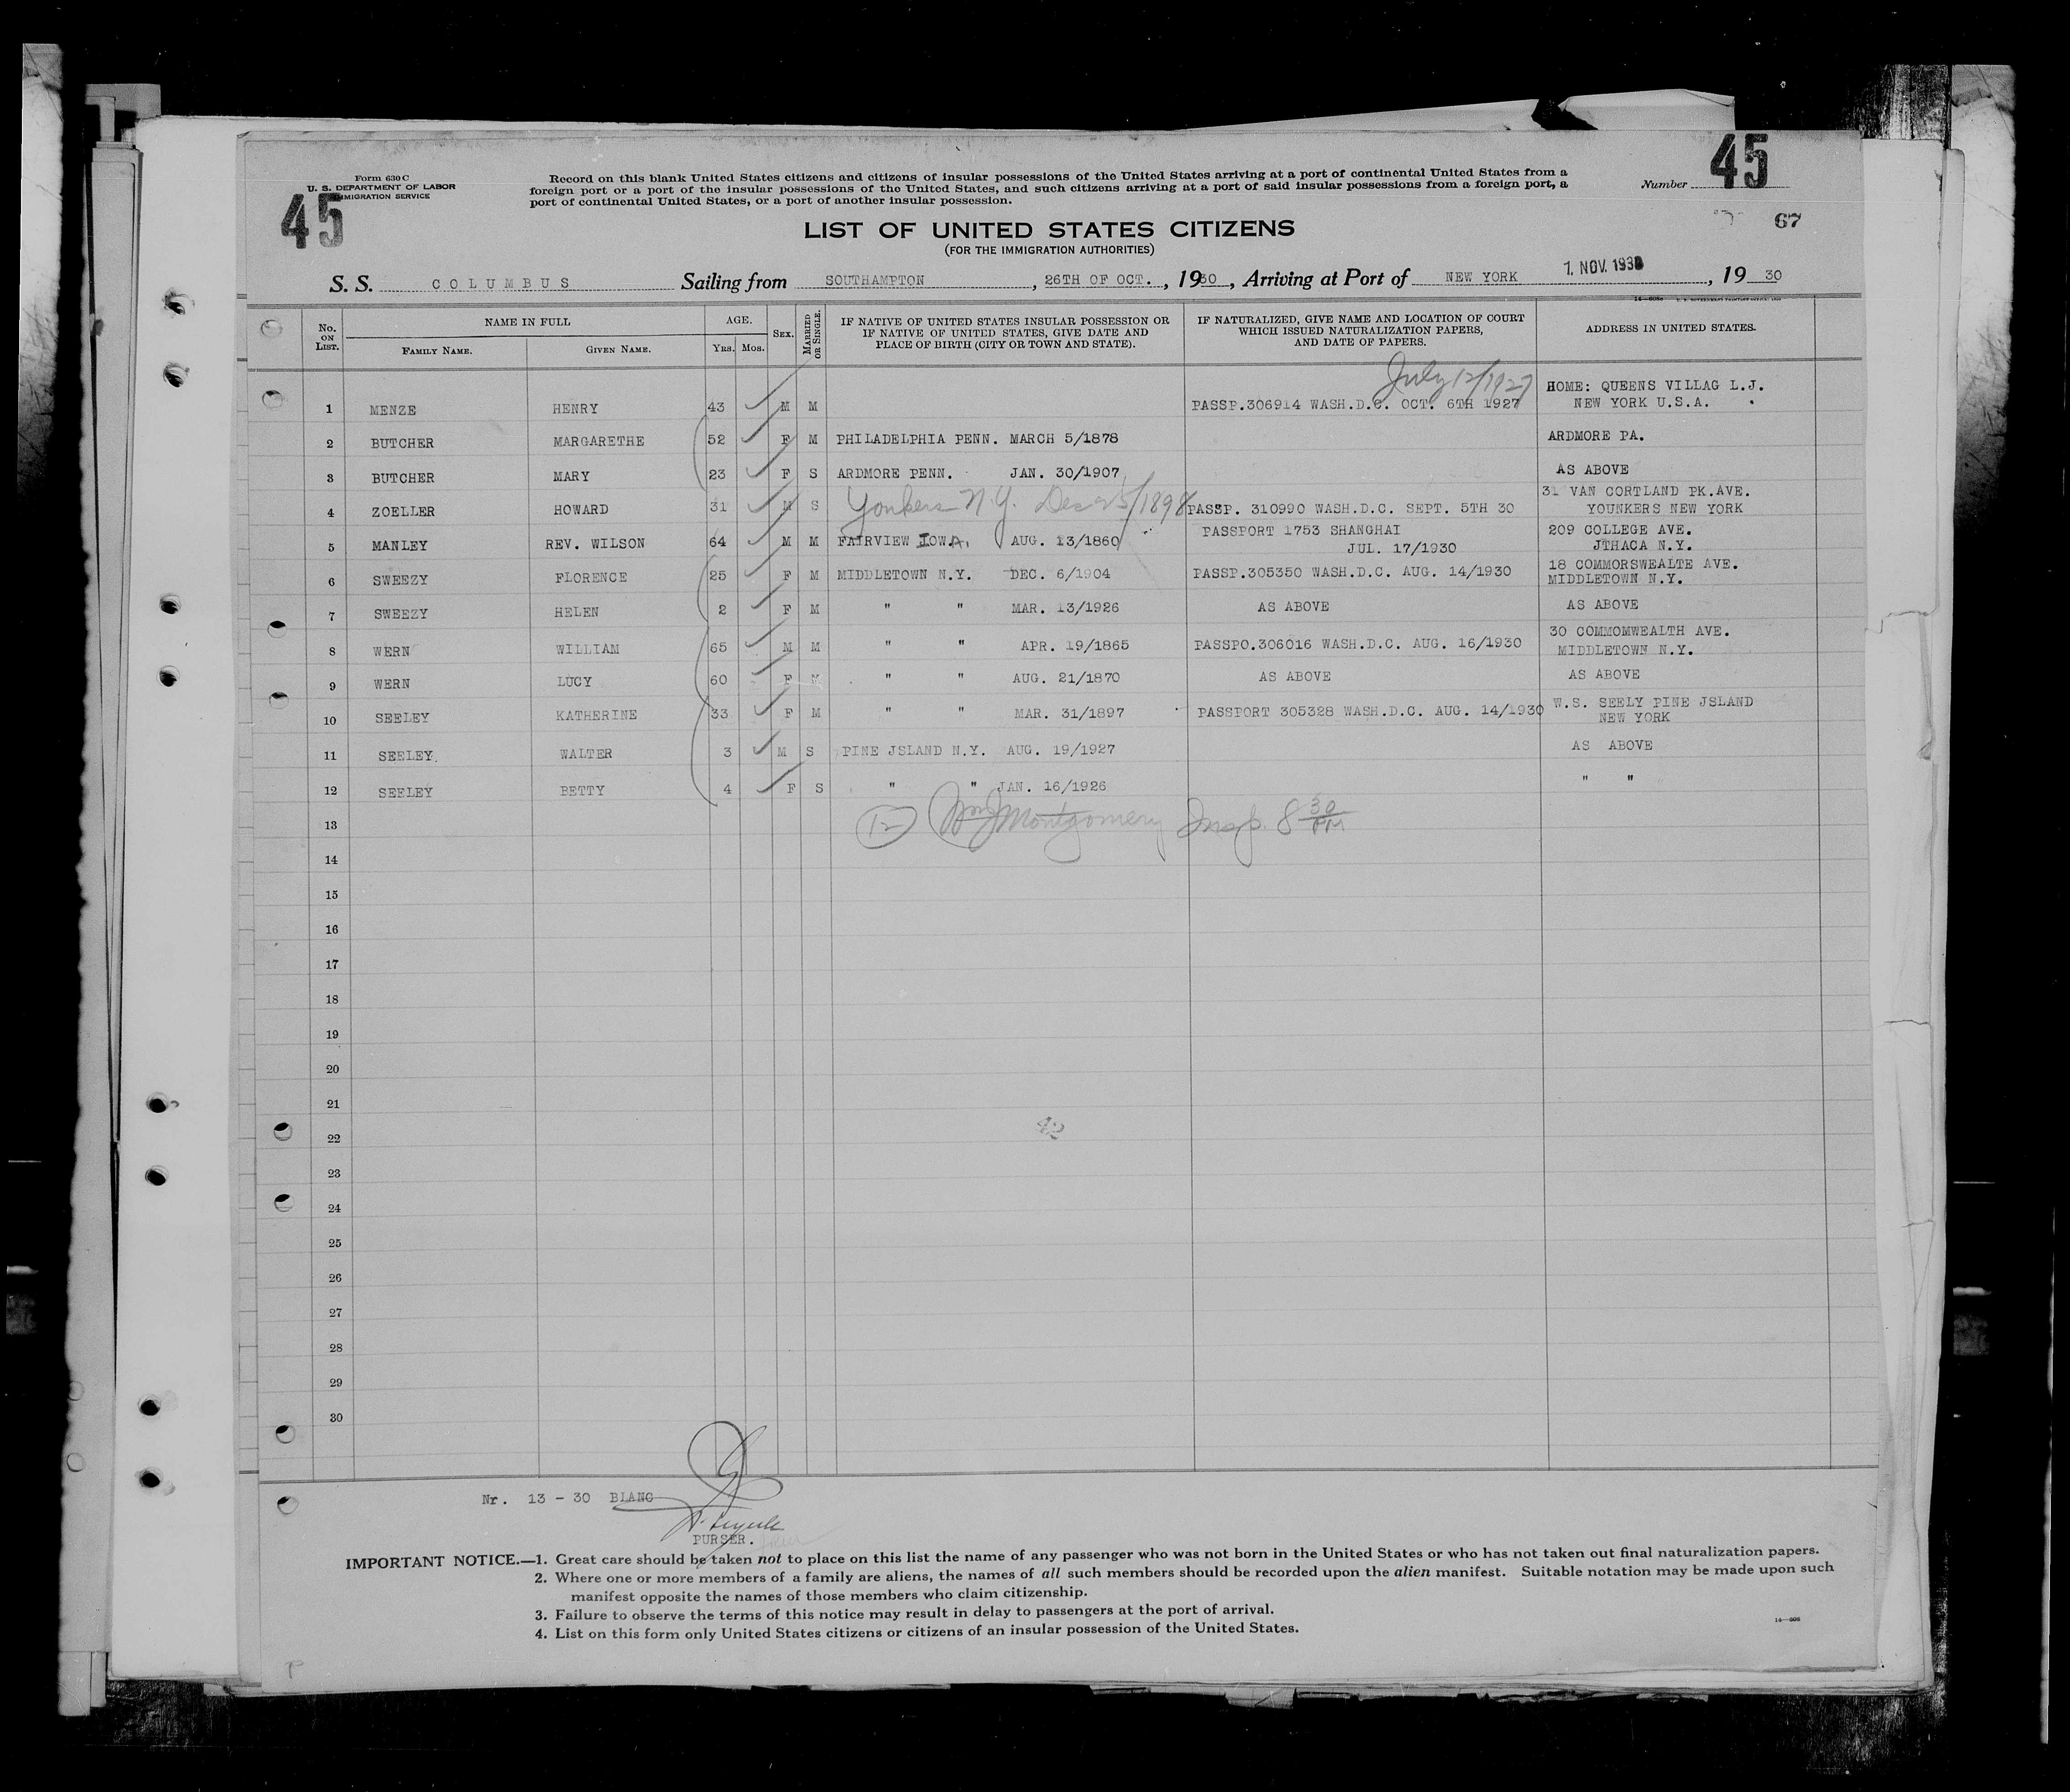 Form 630 C
U. S. DEPARTMENT OF LABOR
IMMIGRATION SERVICE
45
Record on this blank United States citizens and citizens of insular possessions of the United States arriving at a port of continental United States from a
foreign port or a port of the insular possessions of the United States, and such citizens arriving at a port of said insular possessions from a foreign port, a
port of continental United States, or a port of another insular possession.
Number 45
67
LIST OF UNITED STATES CITIZENS
(FOR THE IMMIGRATION AUTHORITIES)
S. S. COLUMBUS Sailing from SOUTHAMPTON, 26TH OF OCT., 1930, Arriving at Port of NEW YORK 7. NOV. 1930, 19 30
No. ON LIST. NAME IN FULL FAMILY NAME. GIVEN NAME. AGE. YRS. MOS. SEX. MARRIED OR SINGLE. IF NATIVE OF UNITED STATES INSULAR POSSESSION OR IF NATIVE OF UNITED STATES, GIVE DATE AND PLACE OF BIRTH (CITY OR TOWN AND STATE). IF NATURALIZED, GIVE NAME AND LOCATION OF COURT WHICH ISSUED NATURALIZATION PAPERS, AND DATE OF PAPERS. ADDRESS IN UNITED STATES.
July 12/1927
1 MENZE HENRY 43 M M PASSP.306914 WASH.D.C. OCT. 6TH 1927 HOME: QUEENS VILLAG L.J. NEW YORK U.S.A.
2 BUTCHER MARGARETHE 52 F M PHILADELPHIA PENN. MARCH 5/1878 ARDMORE PA.
3 BUTCHER MARY 23 F S ARDMORE PENN. JAN. 30/1907 AS ABOVE
4 ZOELLER HOWARD 31 M S Yonkers N.Y. Dec 25/1898 PASSP. 310990 WASH.D.C. SEPT. 5TH 30 31 VAN CORTLAND PK.AVE. YOUNKERS NEW YORK
5 MANLEY REV. WILSON 64 M M FAIRVIEW IOWA, AUG. 13/1860 PASSPORT 1753 SHANGHAI JUL. 17/1930 209 COLLEGE AVE. JTHACA N.Y.
6 SWEEZY FLORENCE 25 F M MIDDLETOWN N.Y. DEC. 6/1904 PASSP.305350 WASH.D.C. AUG. 14/1930 18 COMMORSWEALTE AVE. MIDDLETOWN N.Y.
7 SWEEZY HELEN 2 F M " " MAR. 13/1926 AS ABOVE AS ABOVE
8 WERN WILLIAM 65 M M " " APR. 19/1865 PASSPO.306016 WASH.D.C. AUG. 16/1930 30 COMMOMWEALTH AVE. MIDDLETOWN N.Y.
9 WERN LUCY 60 F M " " AUG. 21/1870 AS ABOVE AS ABOVE
10 SEELEY KATHERINE 33 F M " " MAR. 31/1897 PASSPORT 305328 WASH.D.C. AUG. 14/1930 W.S. SEELY PINE JSLAND NEW YORK
11 SEELEY. WALTER 3 M S PINE JSLAND N.Y. AUG. 19/1927 AS ABOVE
12 SEELEY BETTY 4 F S " " JAN. 16/1926 " "
13 (12) Wm J Montgomery Insp. 8 30 PM
14
15
16
17
18
19
20
21
22
42
23
24
25
26
27
28
29
30
Nr. 13 - 30 BLANC
PURSER.
IMPORTANT NOTICE.—1. Great care should be taken not to place on this list the name of any passenger who was not born in the United States or who has not taken out final naturalization papers.
2. Where one or more members of a family are aliens, the names of all such members should be recorded upon the alien manifest. Suitable notation may be made upon such
manifest opposite the names of those members who claim citizenship.
3. Failure to observe the terms of this notice may result in delay to passengers at the port of arrival.
4. List on this form only United States citizens or citizens of an insular possession of the United States.